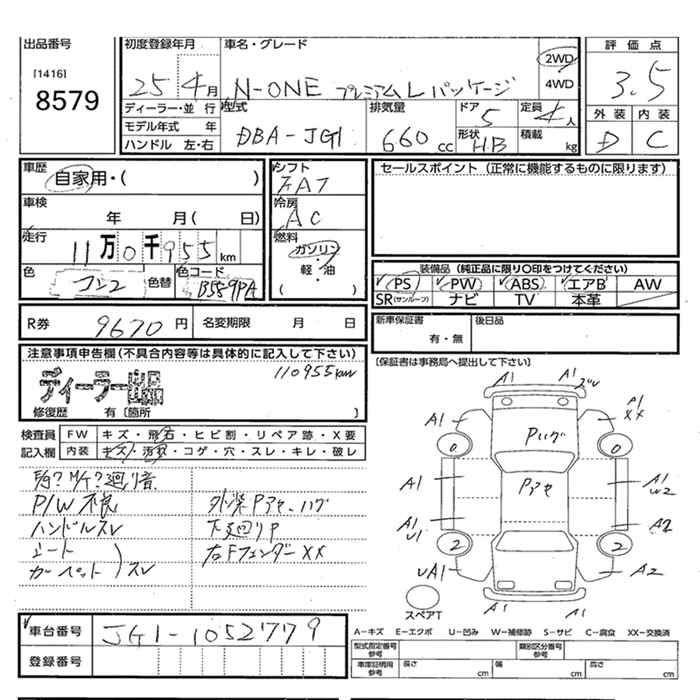 出品番号
[1416]
8579
初度登録年月
25 4月
ディーラー・並行
モデル年式 年
ハンドル 左・右
車名・グレード
N-ONE プレミアムL パッケージ
2WD
4WD
型式
DBA-JG1
排気量
660 cc
ドア
5
定員
4人
形状
H.B
積載
kg
評価点
3.5
外装 内装
D C
車歴
自家用・( )
車検
年 月( 日)
走行
11万0千955km
色
コン2
色替
色コード
B589PA
シフト
FAT
冷房
AC
燃料
ガソリン
・軽・油
( )
セールスポイント (正常に機能するものに限ります)
装備品 (純正品に限り○印をつけてください)
PS PW ABS エアB AW
SR(サンルーフ) ナビ TV 本革
R券 9670円 名変期限 月 日
新車保証書
有・無
後日品
(保証書は事務局へ提出して下さい)
注意事項申告欄(不具合内容等は具体的に記入して下さい)
110955km
ディーラー出品
修復歴 有〔箇所 〕
検査員
記入欄
FW キズ・飛石・ヒビ割・リペア跡・X要
内装 キズ・汚れ・コゲ・穴・スレ・キレ・破レ
P/W不良
ハンドルスレ
シート
カーペット
スレ
外装Pアセ、ハゲ
下廻りP
右FフェンダーXX
A1
A1
A1
A1
XX
Pハゲ
0
0
A1
Pアセ
A1
U2
A1
U1
A2
2
2
UA1
A2
A1
スペアT
車台番号 JG1-1052779
登録番号
A-キズ E-エクボ U-凹み W-補修跡 S-サビ C-腐食 XX-交換済
型式指定番号
参考
類別区分番号
参考
車庫証明用
参考
長さ cm 幅 cm 高さ cm